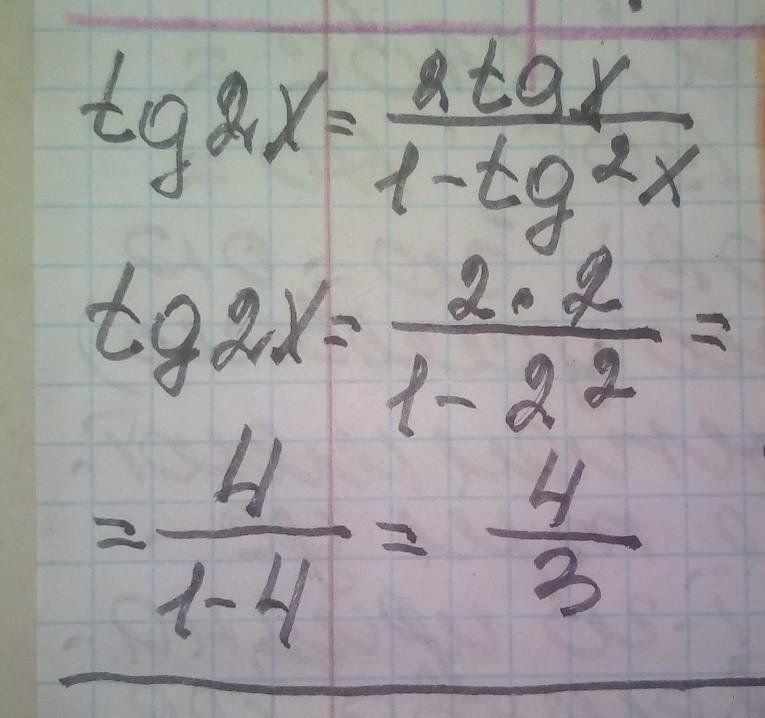 tg2x = 2tgx / 1-tg²x
tg2x = 2·2 / 1-2² =
= 4 / 1-4 = 4 / 3